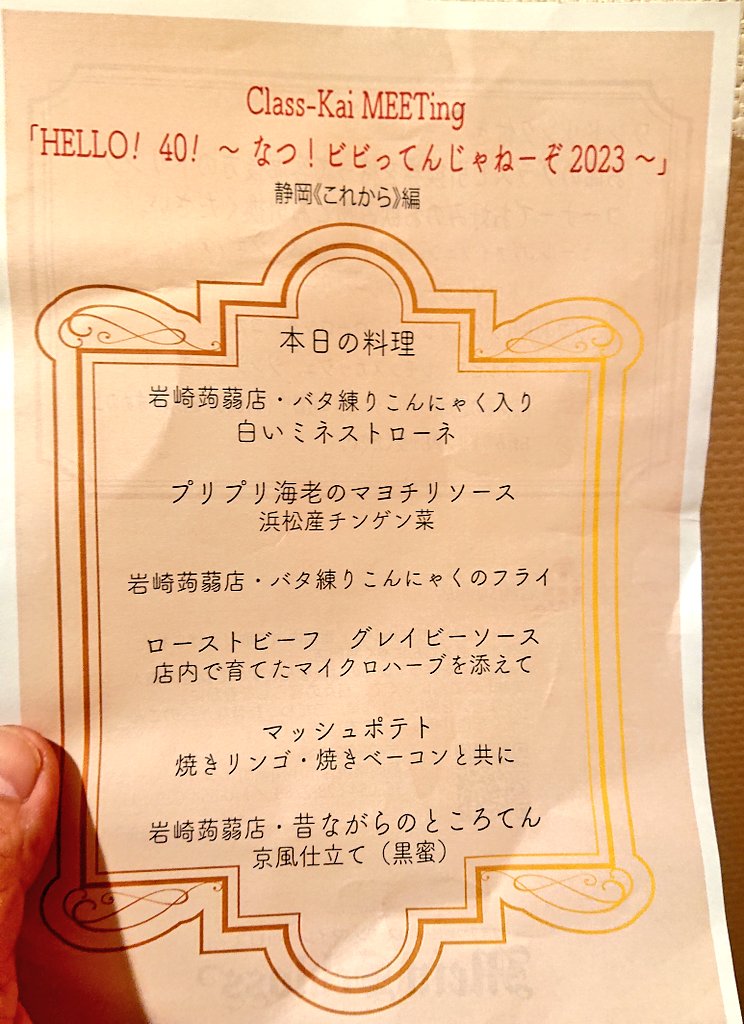 Class-Kai MEETing
「HELLO! 40! ～ なつ！ビビってんじゃねーぞ 2023 ～」
静岡《これから》編
本日の料理
岩崎蒟蒻店・バタ練りこんにゃく入り
白いミネストローネ
プリプリ海老のマヨチリソース
浜松産チンゲン菜
岩崎蒟蒻店・バタ練りこんにゃくのフライ
ローストビーフ　グレイビーソース
店内で育てたマイクロハーブを添えて
マッシュポテト
焼きリンゴ・焼きベーコンと共に
岩崎蒟蒻店・昔ながらのところてん
京風仕立て（黒蜜）